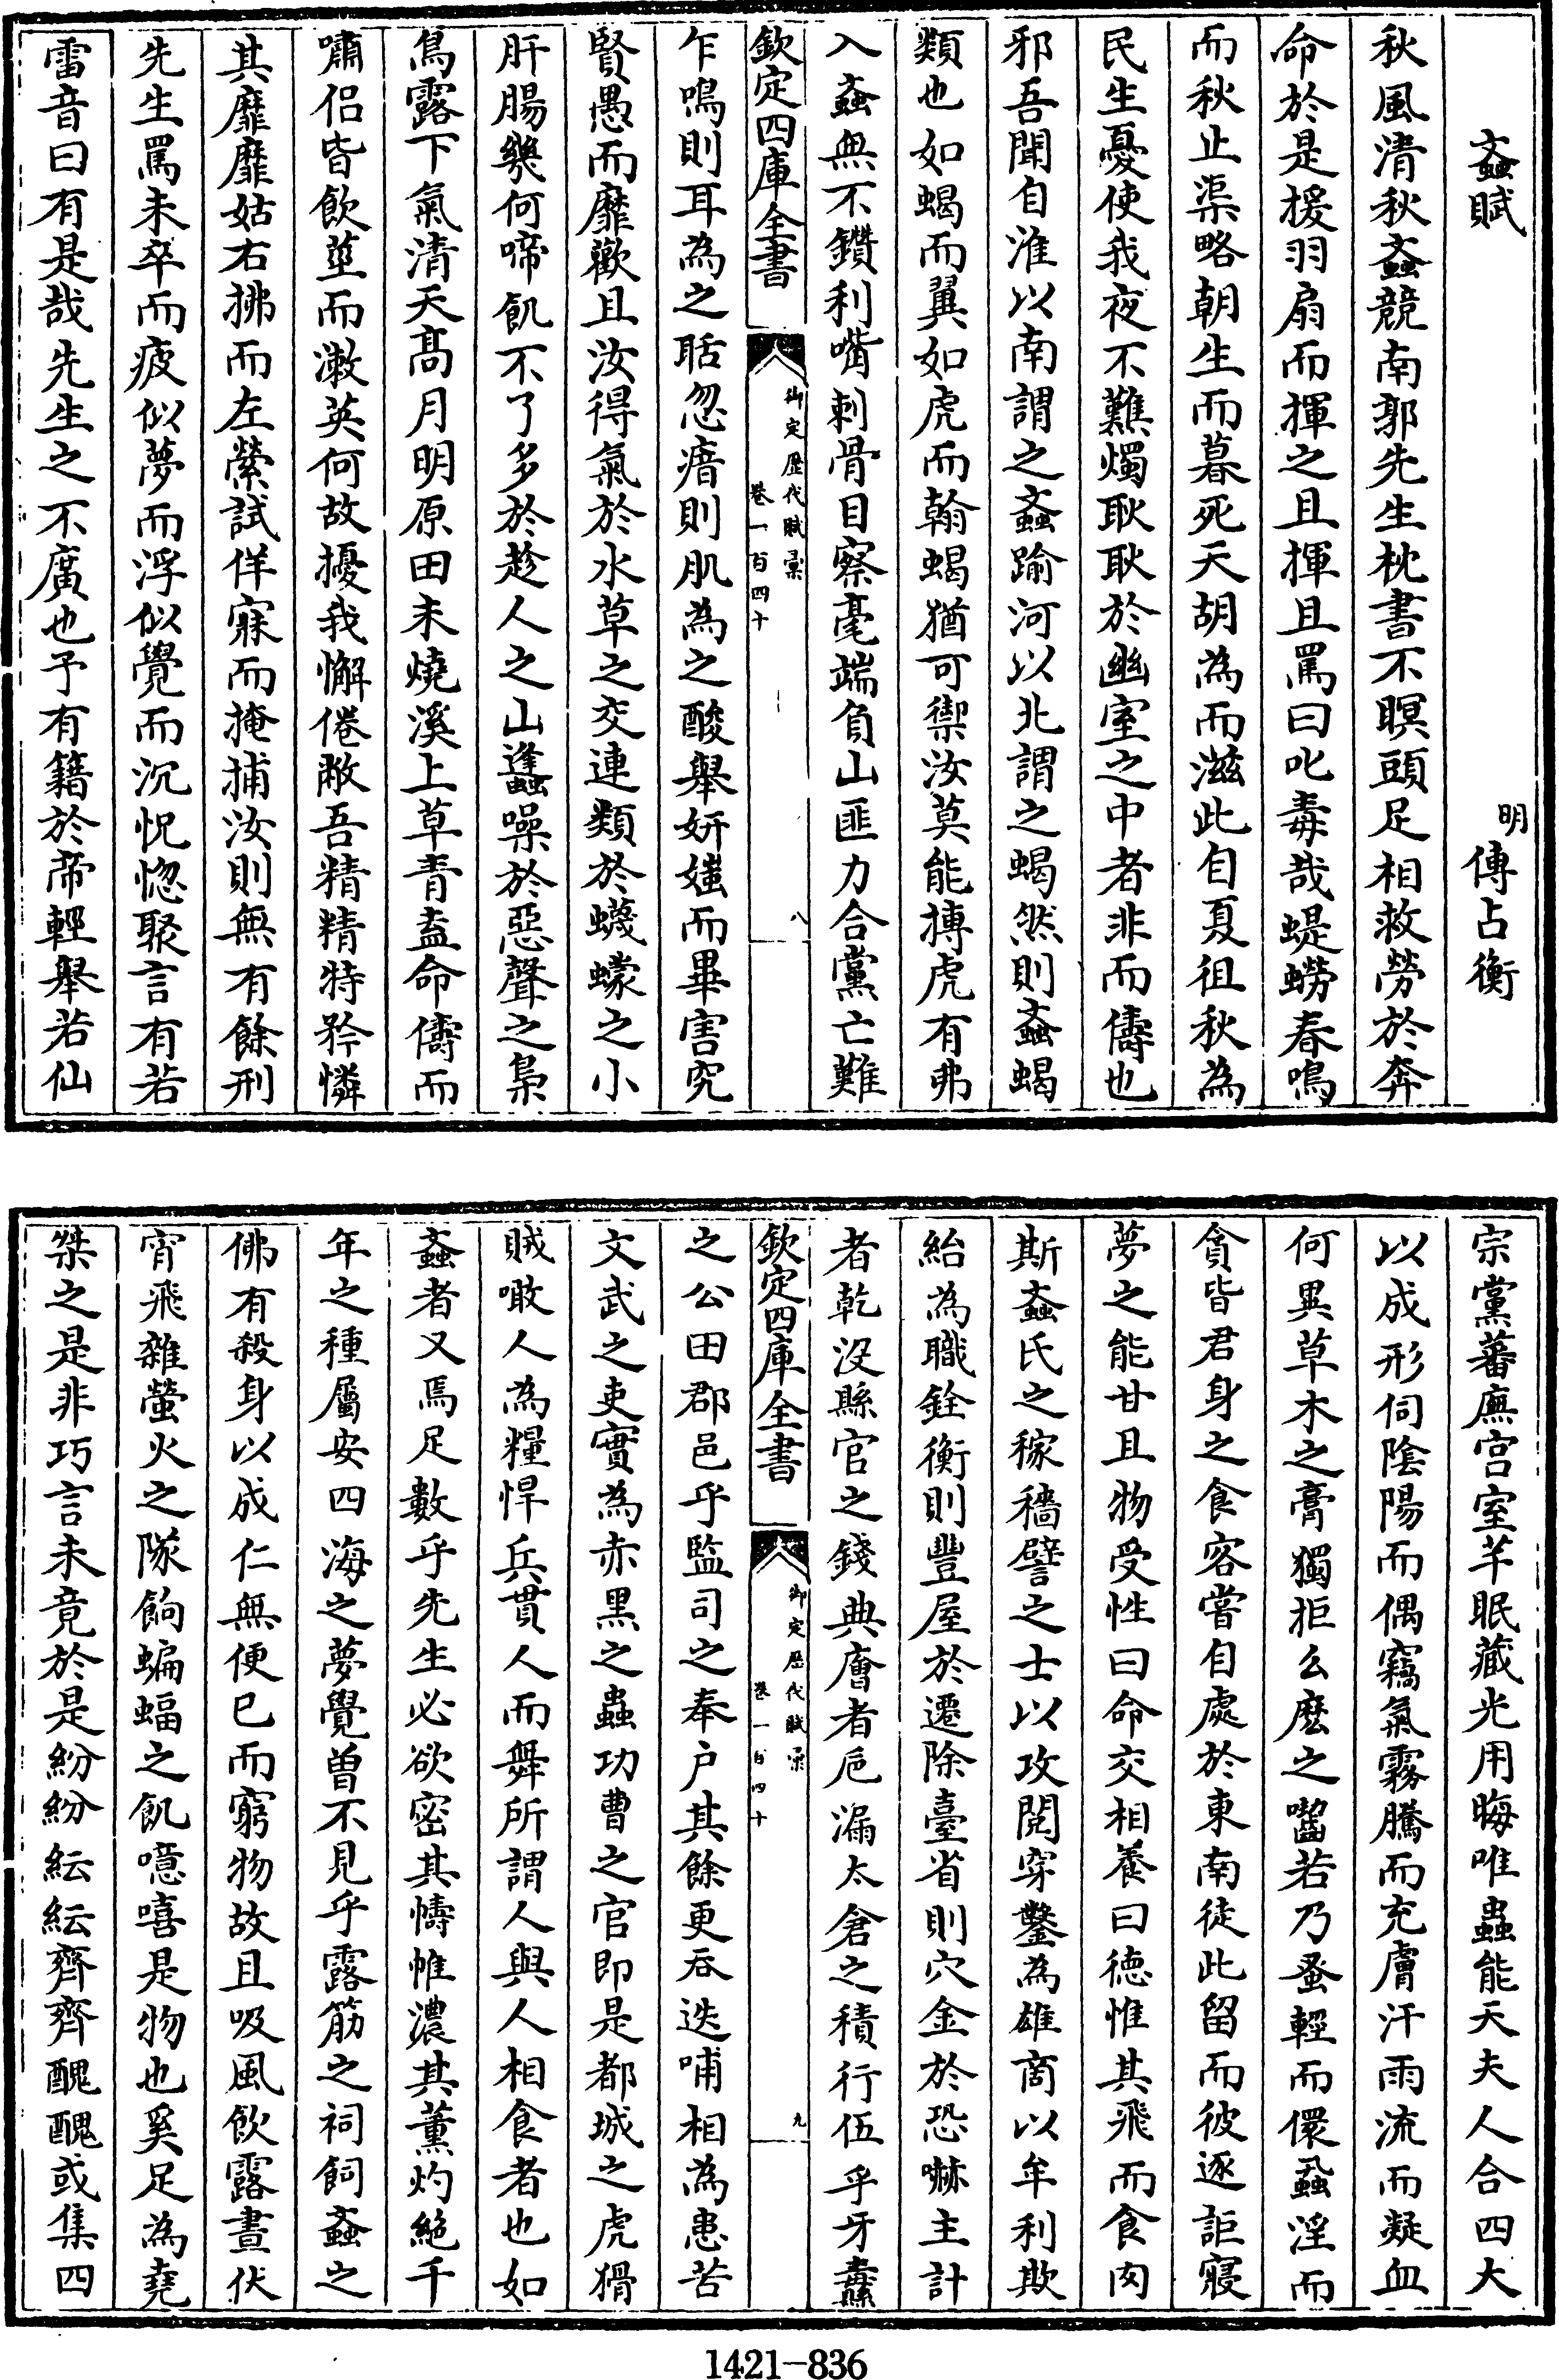 蚉賦
明 傅占衡
秋風清秋蚉競南郭先生枕書不暝頭足相救勞於奔
命於是援羽扇而揮之且揮且罵曰叱毒哉蝭蟧春鳴
而秋止渠略朝生而暮死天胡為而滋此自夏徂秋為
民生憂使我夜不難燭耿耿於幽室之中者非而儔也
邪吾聞自淮以南謂之蚉踰河以北謂之蝎然則蚉蝎
類也如蝎而翼如虎而翰蝎猶可禦汝莫能搏虎有弗
入蚉無不鑽利嘴刺骨目察毫端負山匪力合黨亡難
欽定四庫全書
御定歷代賦彙
卷一百四十
八
乍鳴則耳為之聒忽瘖則肌為之酸舉妍媸而畢害究
賢愚而靡歡且汝得氣於水草之交連類於蠛蠓之小
肝腸樂何啼飢不了多於趁人之山蠭噪於惡聲之梟
鳥露下氣清天高月明原田未燒溪上草青盍命儔而
嘯侶皆飲莖而漱英何故擾我懈倦敝吾精精特矜憐
其靡靡姑右拂而左縈試佯寐而掩捕汝則無有餘刑
先生罵未卒而疲似夢而浮似覺而沉怳惚聚言有若
雷音曰有是哉先生之不廣也予有籍於帝輕舉若仙
宗黨蕃廡宫室芊眠藏光用晦唯蟲能天夫人合四大
以成形伺陰陽而偶竊氣霧騰而充膚汗雨流而凝血
何異草木之膏獨拒么麽之齧若乃蚤輕而儇蝨淫而
貪皆君身之食客嘗自處於東南徒此留而彼逐詎寢
夢之能甘且物受性曰命交相養曰德惟其飛而食肉
斯蚉氏之稼穡譬之士以攻閱穿鑿為雄商以牟利欺
紿為職銓衡則豐屋於遷除臺省則穴金於恐嚇主計
者乾没縣官之錢典㕑者巵漏太倉之積行伍乎牙蠹
欽定四庫全書
御定歷代賦彙
卷一百四十
九
之公田郡邑乎監司之奉户其餘更吞迭哺相為患苦
文武之吏實為赤黑之蟲功曹之官即是都城之虎猾
賊噉人為糧悍兵貫人而舞所謂人與人相食者也如
蚉者又焉足數乎先生必欲密其幬帷濃其薰灼絶千
年之種屬安四海之夢覺曽不見乎露筋之祠飼蚉之
佛有殺身以成仁無便已而窮物故且吸風飲露晝伏
宵飛雜螢火之隊餉蝙蝠之飢噫嘻是物也奚足為堯
桀之是非巧言未竟於是紛紛紜紜齊齊醜醜或集四
1421—836